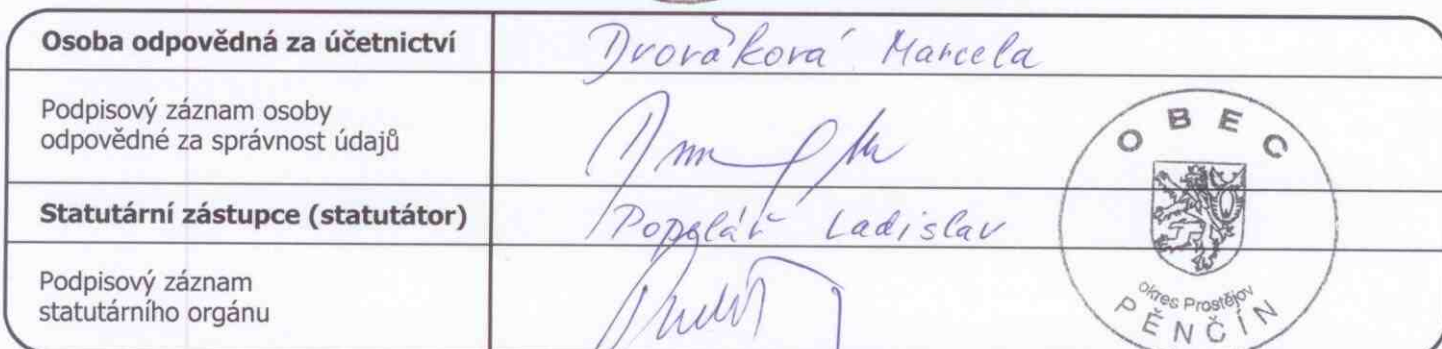 Osoba odpovědná za účetnictví
Dvořáková Marcela
Podpisový záznam osoby
odpovědné za správnost údajů
Statutární zástupce (statutátor)
Popelář Ladislav
Podpisový záznam
statutárního orgánu
OBEC
okres Prostějov
PĚNČÍN